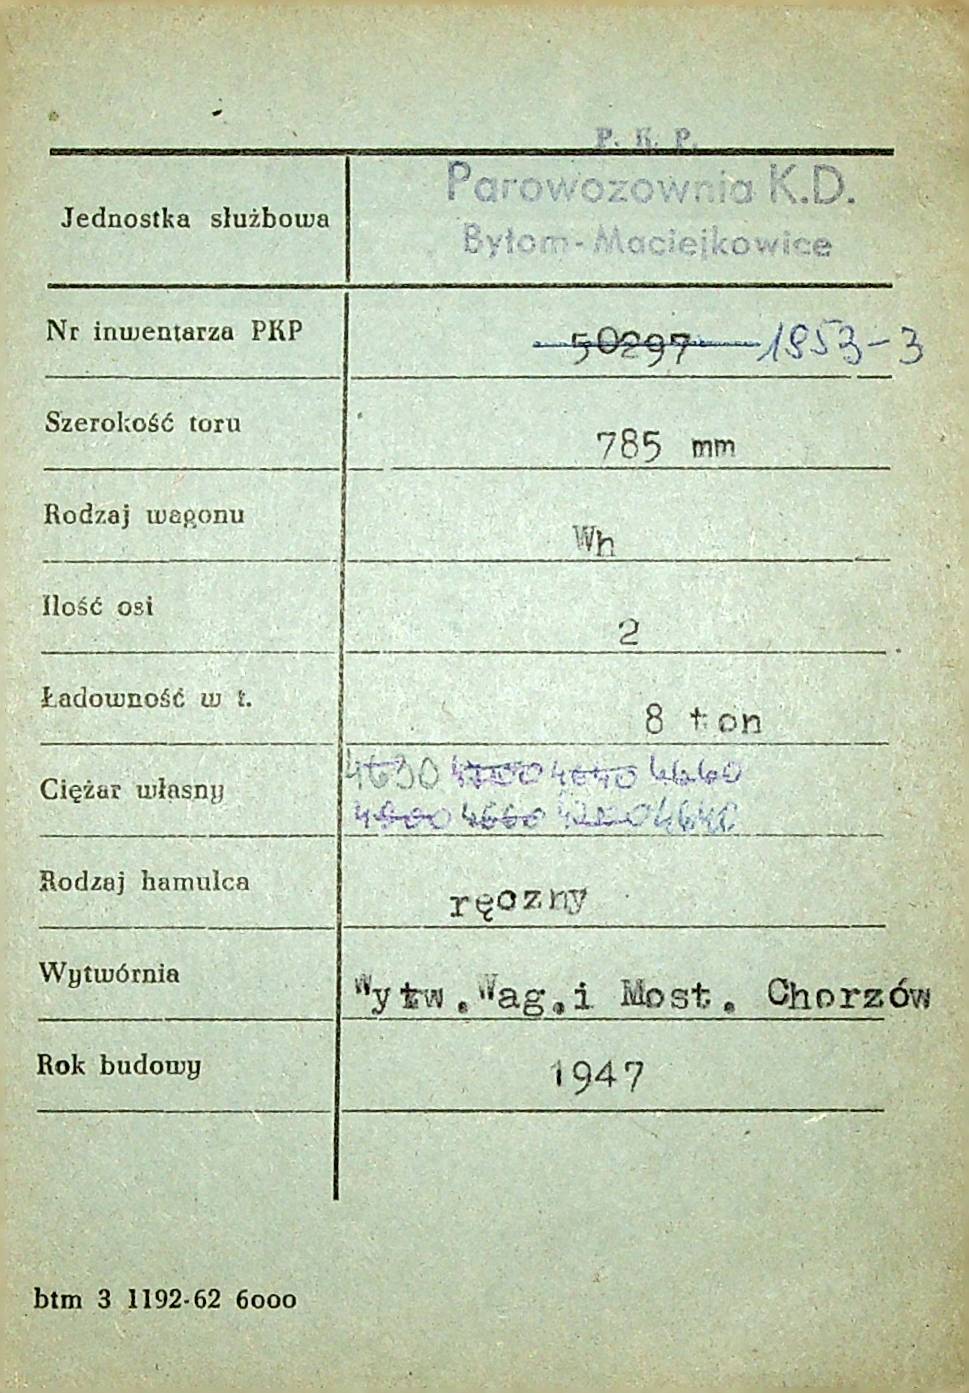 P. K. P.
Parowozownia K.D.
Bytom-Maciejkowice
Jednostka służbowa
Nr inwentarza PKP 50297 1953-3
Szerokość toru 785 mm
Rodzaj wagonu Wh
Ilość osi 2
Ładowność w t. 8 ton
Ciężar własny 4630 4700 4640 4660
4900 4660 4640
Rodzaj hamulca ręczny
Wytwórnia Wytw.Wag.i Most. Chorzów
Rok budowy 1947
btm 3 1192-62 6000